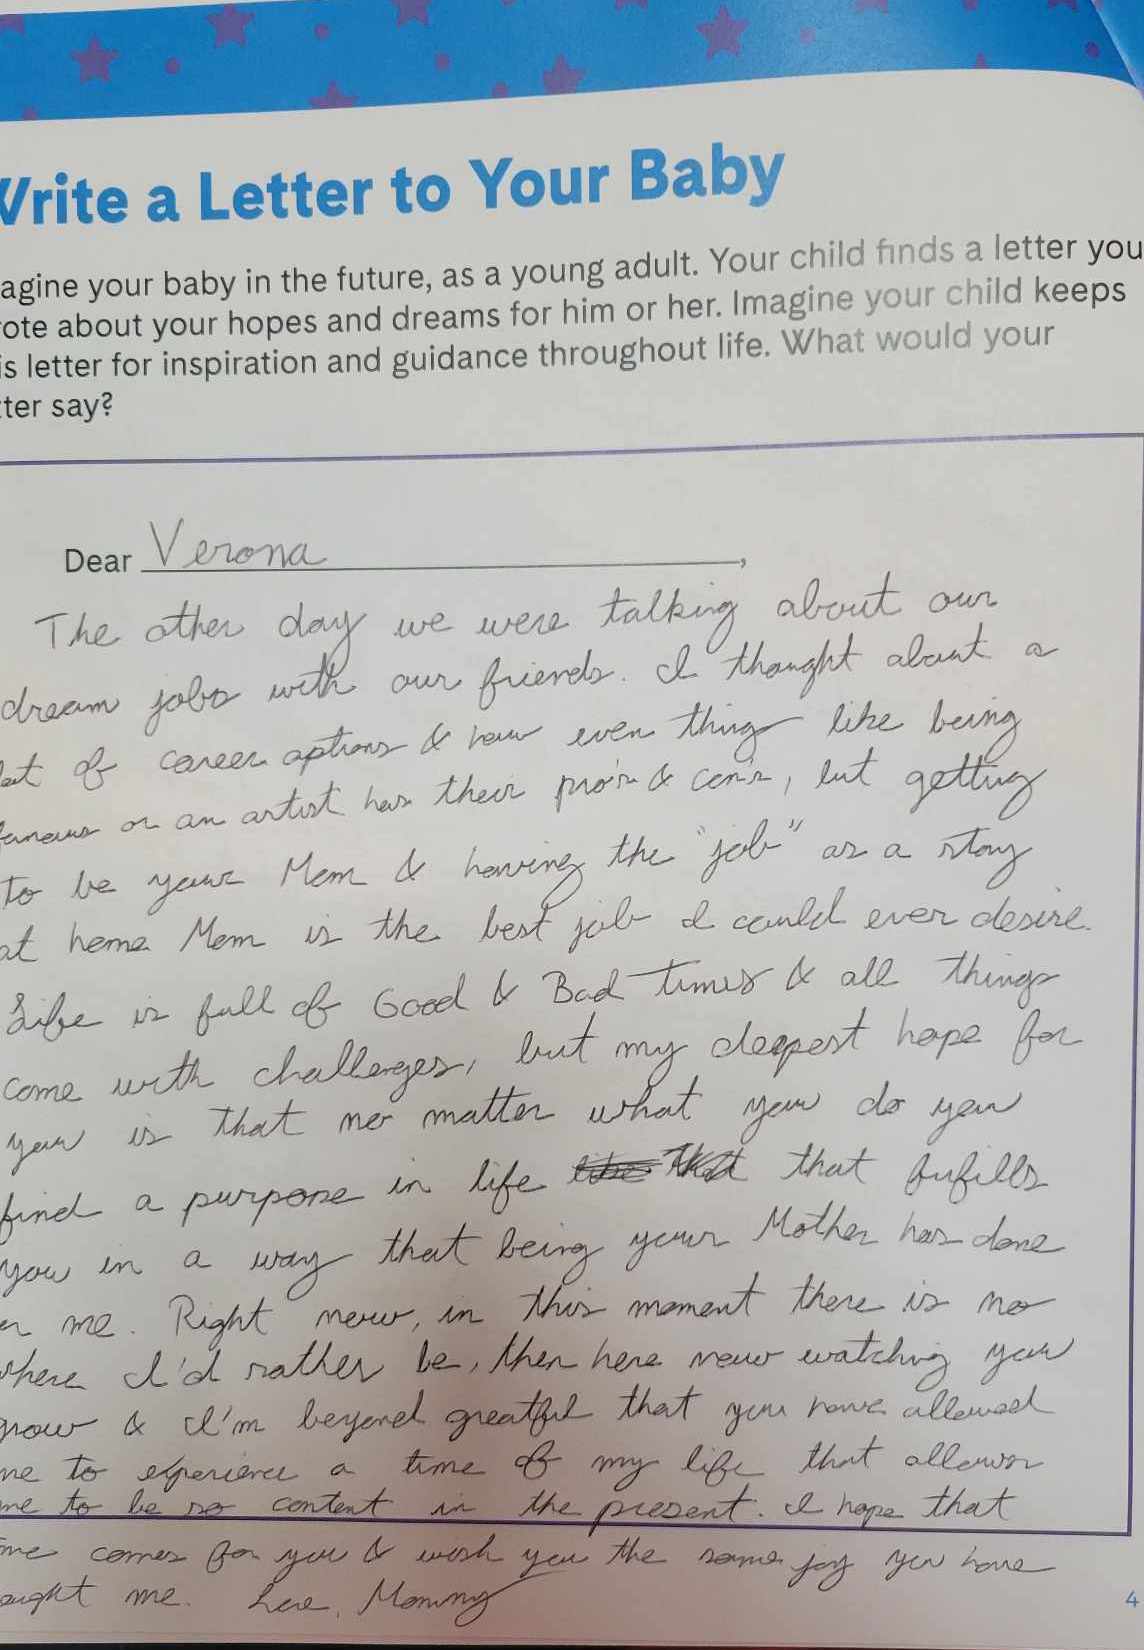 Write a Letter to Your Baby
agine your baby in the future, as a young adult. Your child finds a letter you
rote about your hopes and dreams for him or her. Imagine your child keeps
is letter for inspiration and guidance throughout life. What would your
tter say?
Dear Verona,
The other day we were talking about our
dream jobs with our friends. I thought about a
lot of career options & how even thing like being
famous or an artist has their pro's & con's, but getting
to be your Mom & having the "job" as a stay
at home Mom is the best job I could ever desire.
Life is full of Good & Bad times & all things
come with challenges, but my deepest hope for
you is that no matter what you do you
find a purpose in life that fufills
you in a way that being your Mother has done
er me. Right now, in this moment there is no
where I'd rather be, then here now watching you
grow & I'm beyond greatful that you have allowed
me to experience a time of my life that allows
me to be so content in the present. I hope that
me comes for you & wish you the same joy you have
ought me. Love, Mommy
4